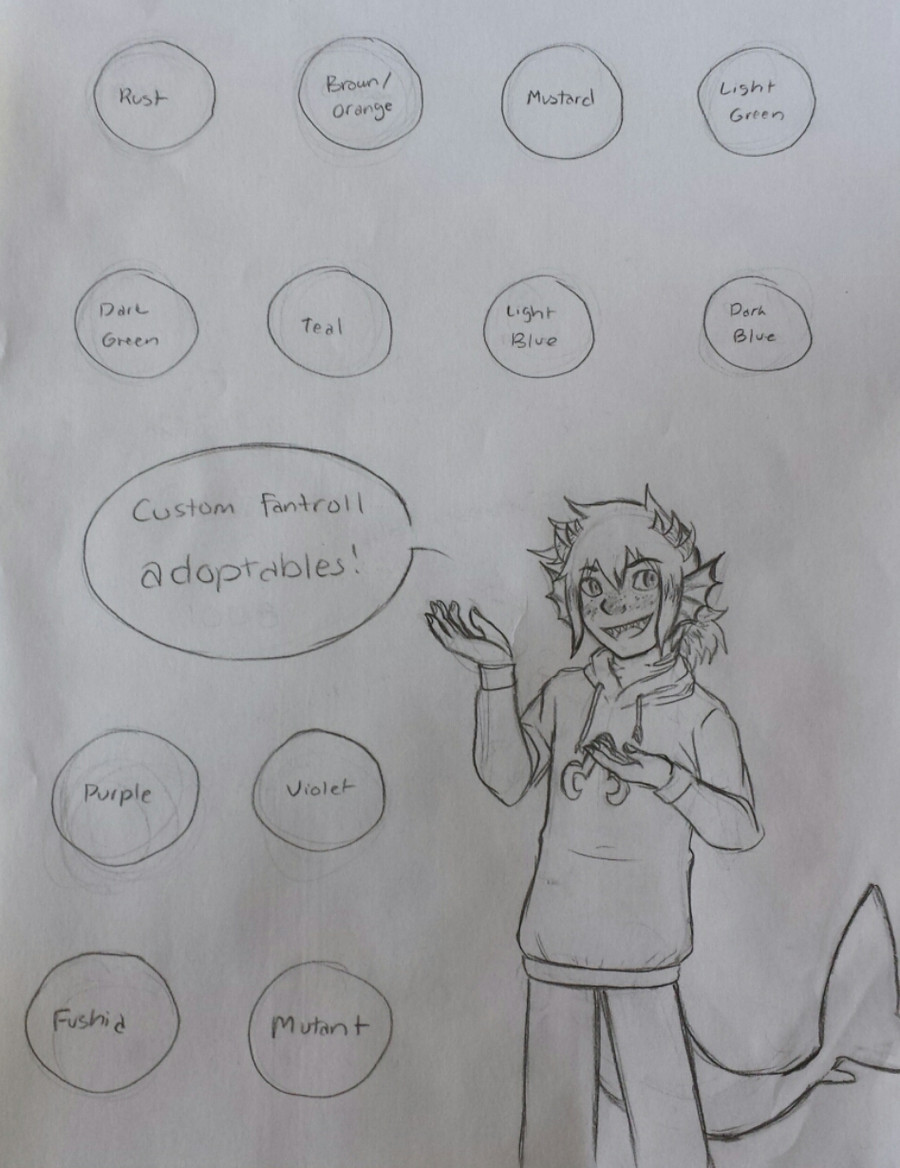 Rust
Brown/
Orange
Mustard
Light
Green
Dark
Green
Teal
Light
Blue
Dark
Blue
Custom Fantroll
adoptables!
Purple
Violet
Fushia
Mutant